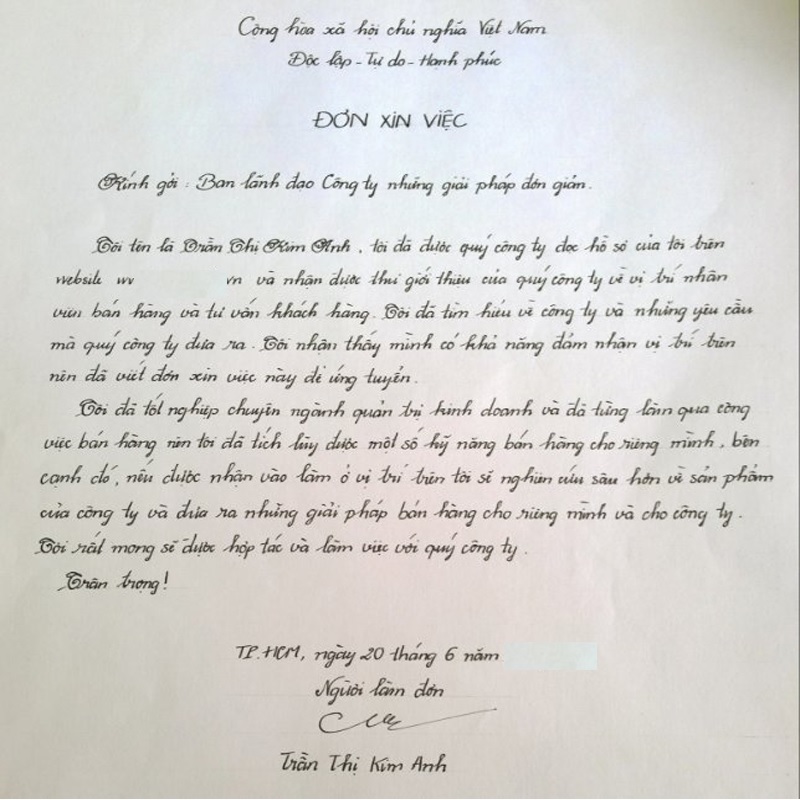 Cộng hòa xã hội chủ nghĩa Việt Nam
Độc lập - Tự do - Hạnh phúc
ĐƠN XIN VIỆC
Kính gởi : Ban lãnh đạo Công ty những giải pháp đơn giản.
Tôi tên là Trần Thị Kim Anh , tôi đã được quý công ty đọc hồ sơ của tôi trên
website wv vn và nhận được thư giới thiệu của quý công ty về vị trí nhân
viên bán hàng và tư vấn khách hàng. Tôi đã tìm hiểu về công ty và những yêu cầu
mà quý công ty đưa ra. Tôi nhận thấy mình có khả năng đảm nhận vị trí trên
nên đã viết đơn xin việc này để ứng tuyển.
Tôi đã tốt nghiệp chuyên ngành quản trị kinh doanh và đã từng làm qua công
việc bán hàng nên tôi đã tích lũy được một số kỹ năng bán hàng cho riêng mình , bên
cạnh đó, nếu được nhận vào làm ở vị trí trên tôi sẽ nghiên cứu sâu hơn về sản phẩm
của công ty và đưa ra những giải pháp bán hàng cho riêng mình và cho công ty.
Tôi rất mong sẽ được hợp tác và làm việc với quý công ty.
Trân trọng!
TP.HCM, ngày 20 tháng 6 năm
Người làm đơn
Trần Thị Kim Anh